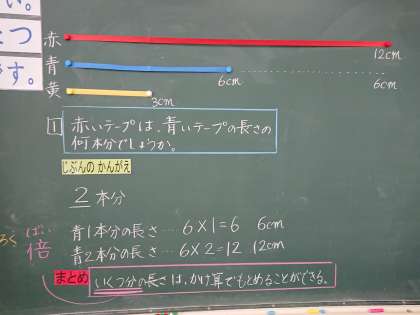 い。
つ
す。
赤
12cm
青
6cm
6cm
黄
3cm
1 赤いテープは、青いテープの長さの
何本分でしょうか。
じぶんの かんがえ
2本分
青1本分の長さ…… 6×1=6 6cm
青2本分の長さ… 6×2=12 12cm
ばい
倍
まとめ いくつ分の長さは、かけ算でもとめることができる。